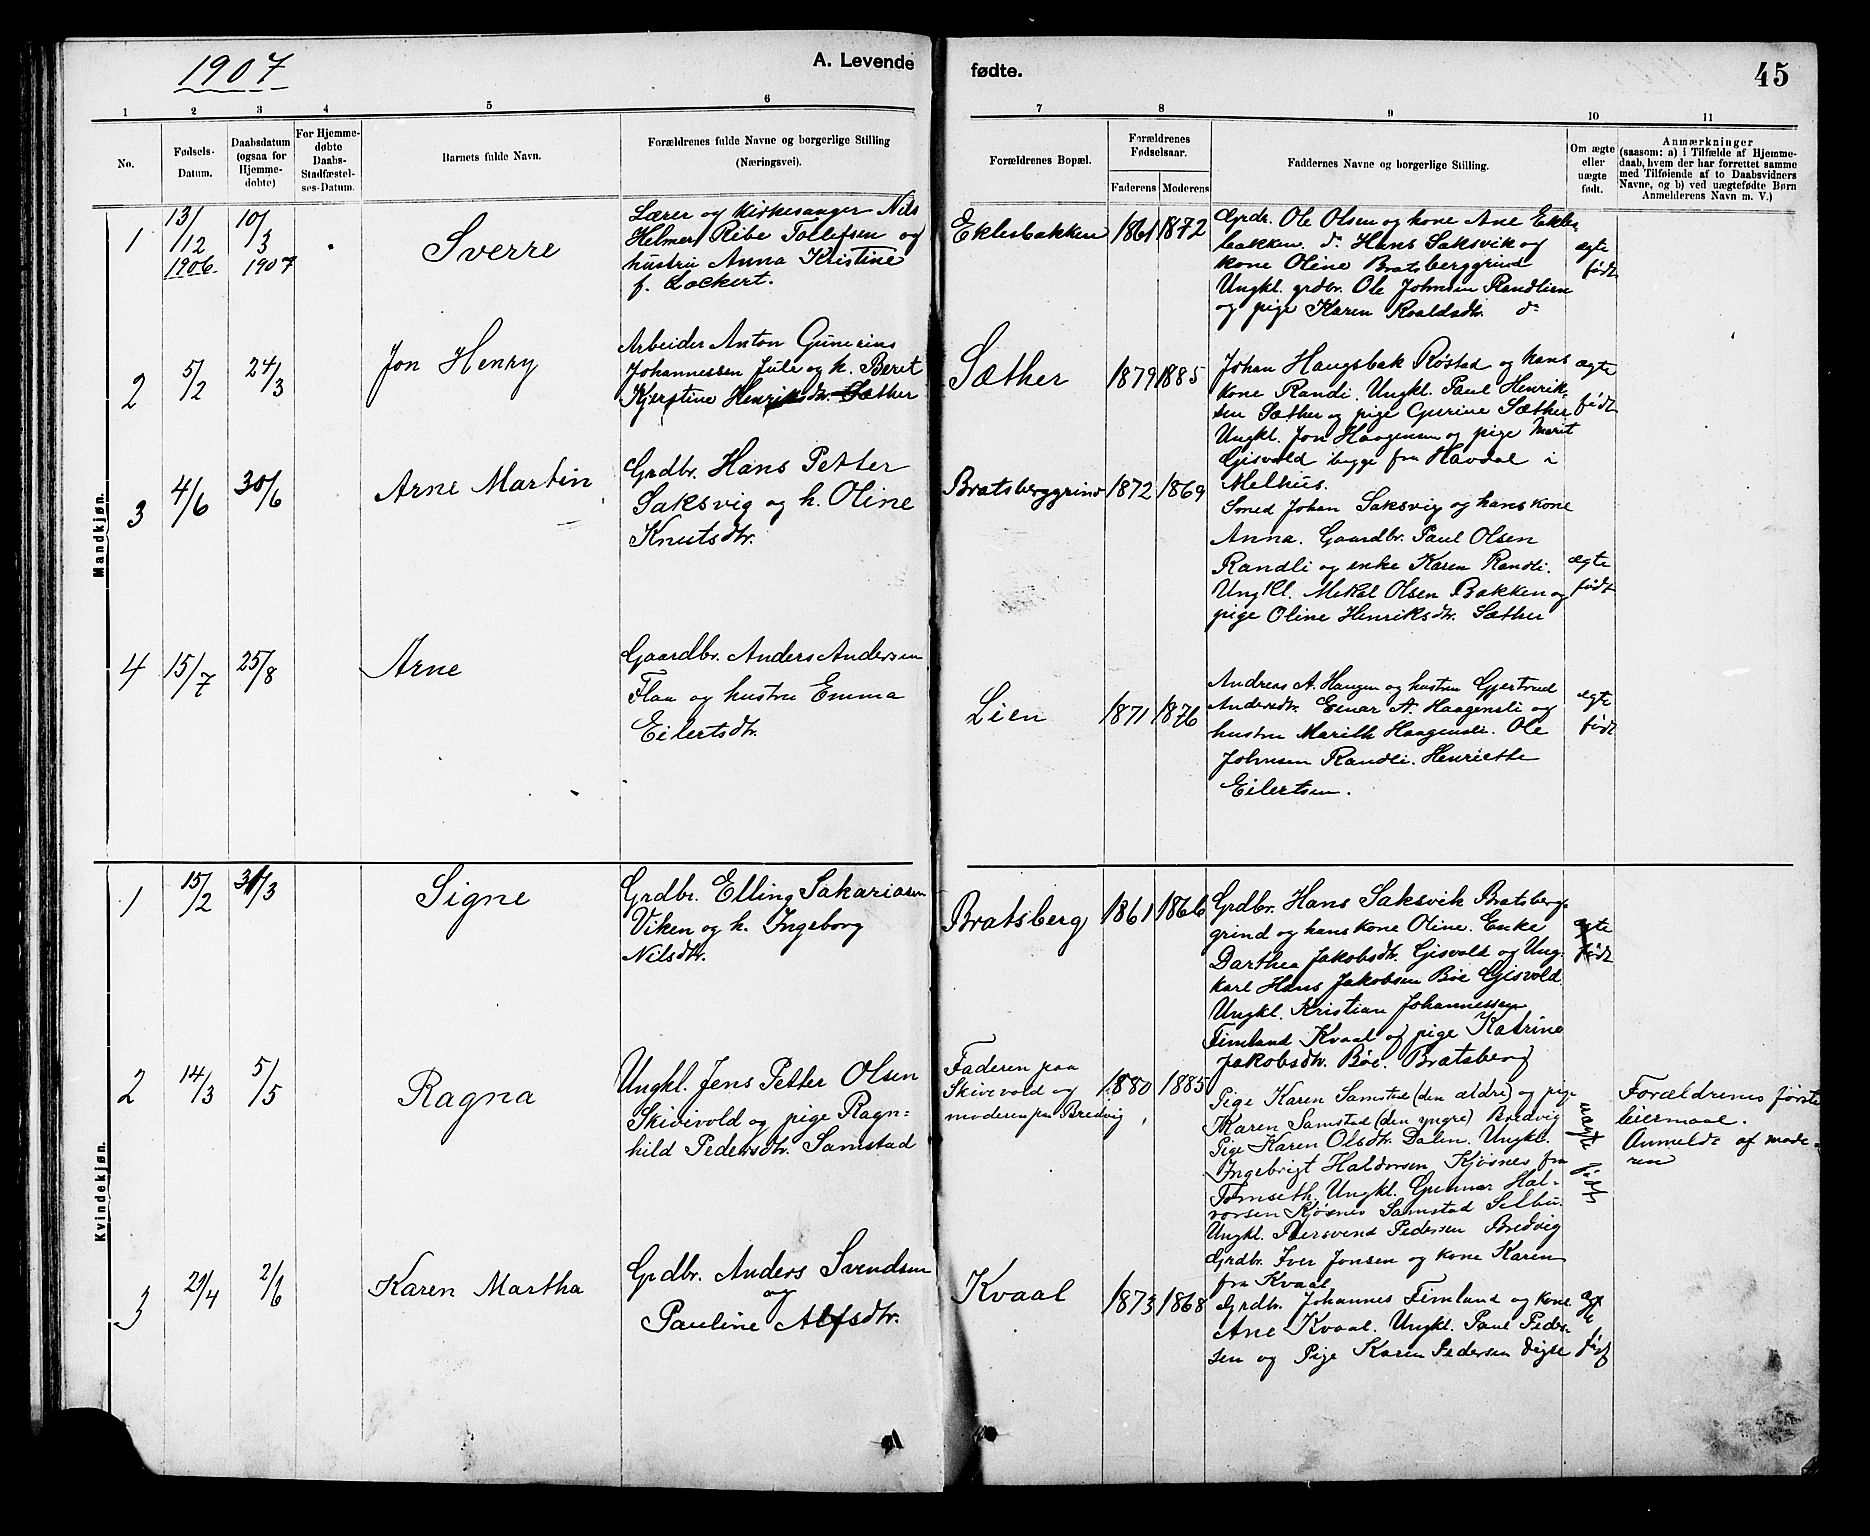 1907
A. Levende
fødte.
45
1
2
3
4
5
6
7
8
9
10
11
No.
Fødsels-
Datum.
Daabsdatum
(ogsaa for
Hjemme-
døbte)
For Hjemme-
døbte
Daabs-
Stadfæstel-
ses-Datum.
Barnets fulde Navn.
Forældrenes fulde Navne og borgerlige Stilling
(Næringsvei).
Forældrenes Bopæl.
Forældrenes
Fødselsaar.
Faderens
Moderens
Faddernes Navne og borgerlige Stilling.
Om ægte
eller
uægte
født.
Anmærkninger
(saasom: a) i Tilfælde af Hjemme-
daab, hvem der har forrettet samme
med Tilføiende af to Daabsvidners
Navne, og b) ved uægtefødte Børn
Anmelderens Navn m. V.)
Mandkjøn.
1
13/12
1906.
10/3
1907
Sverre
Lærer og kirkesanger Nils
Helmer Ribe Tollefsen og
hustru Anna Kristine
f. Lockert.
Eklesbakken
1861
1872
Grdr. Ole Olsen og kone Ane Ekles
bakken. do Hans Saksvik og
kone Oline Bratsberggrind
Ungkl. grdbr. Ole Johnsen Randlien
og pige Karen Roaldsdtr. do
ægte
født
2
5/2
24/3
Jon Henry
Arbeider Anton Gunerius
Johannessen Jule og h. Beret
Kjerstine Henriksdtr. Sæther
Sæther
1879
1885
Johan Haugsbak Røstad og hans
kone Randi. Ungkl. Paul Henrik-
sen Sæther og pige Gurine Sæther
Ungkl. Jon Haagensen og pige Marit
Gisvold begge fra Havdal i
Melhus.
ægte
født
3
4/6
30/6
Arne Martin
Grdbr. Hans Petter
Saksvig og h. Oline
Knutsdtr.
Bratsberggrind
1872
1869
Smed Johan Saksvig og hans kone
Anna. Gaardbr. Paul Olsen
Randli og enke Karen Randli.
Ungkl. Mekal Olsen Bakken og
pige Oline Henriksdtr. Sæther
ægte
født
4
15/7
25/8
Arne
Gaardbr. Anders Andersen
Flaa og hustru Emma
Eilertsdtr.
Lien
1871
1876
Andreas A. Haugen og hustru Gjertrud
Andersdtr. Einar A. Haagensli og
hustru Marith Haagensli. Ole
Johnsen Randli. Henriette
Eilertsen.
ægte
født
Kvindekjøn.
1
15/2
31/3
Signe
Grdbr. Elling Sakariasen
Viken og h. Ingeborg
Nilsdtr.
Bratsberg
1861
1866
Grdbr. Hans Saksvik Bratsberg-
grind og hans kone Oline. Enke
Darthea Jakobsdtr. Gisvold og Ung-
karl Hans Jakobsen Bøe Gisvold
Ungkl. Kristian Johannessen
Fimland Kvaal og pige Katrine
Jakobsdtr. Bøe. Bratsberg
ægte
født
2
14/3
5/5
Ragna
Ungkl. Jens Petter Olsen
Skivivold og pige Ragn=
hild Pedersdtr. Samstad
Faderen paa
Skivevold og
moderen paa Bredvig
1880
1885
Pige Karen Samstad (den ældre) og pige
Karen Samstad (den yngre) Bredvig
Pige Karen Olsdtr. Dalen. Ungkl.
Ingebrigt Haldorsen Kjøsnes fra
Tømseth. Ungkl. Gunnar Hal-
vorsen Kjøsnes Samstad Selbu.
Ungkl. Persvend Pedersen Bredvig
uægte født
Forældrenes første
leiermaal.
Anmeldt af mode-
ren
3
29/4
2/6
Karen Martha
Grdbr. Anders Svendsen
og
Pauline Alfsdtr.
Kvaal
1873
1868
Grdbr. Iver Jonsen og kone Karen
fra Kvaal
Grdbr. Johannes Fimland og kone
Ane Kvaal. Ungkl. Paul Peder-
sen og Pige Karen Pedersen Digre
ægte
født